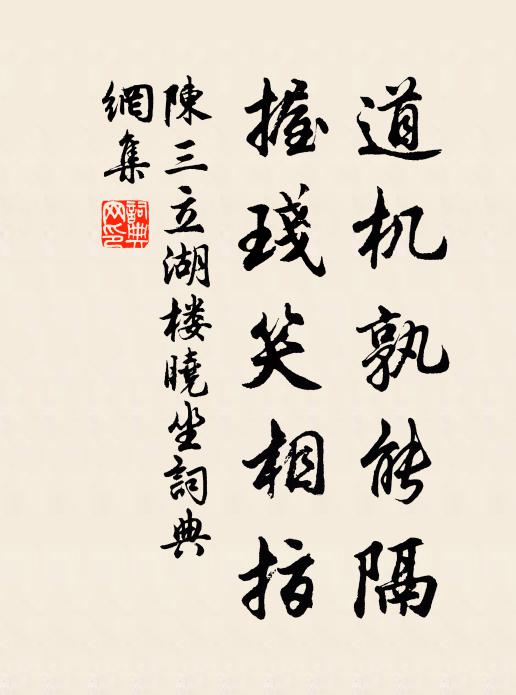 道机孰能隔
握琖笑相指
陳三立湖楼曉坐詞典
網集
詞典网印